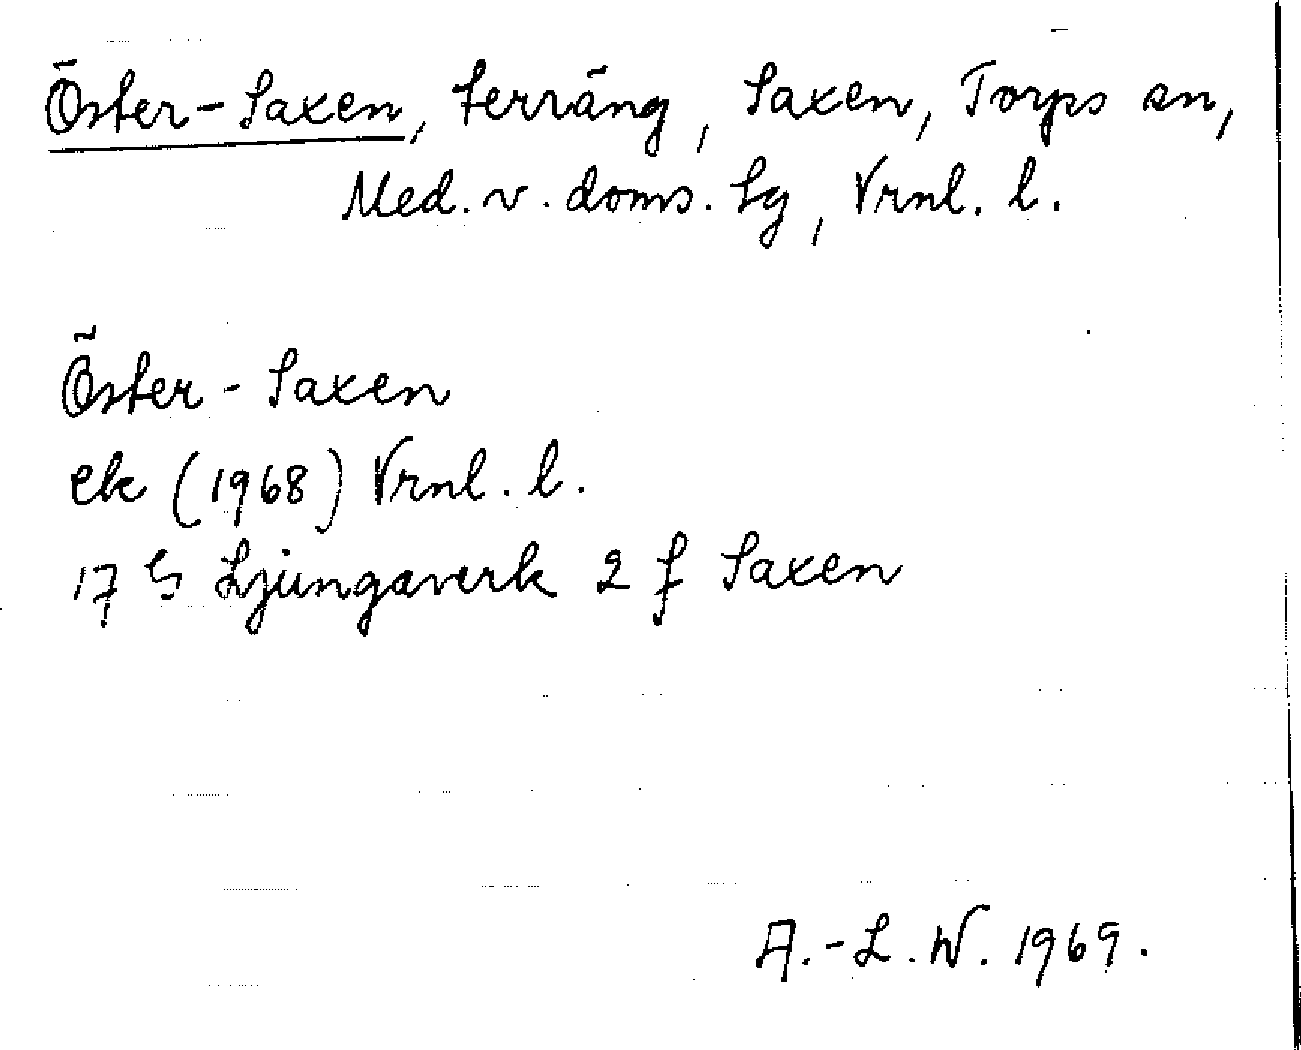 Öster-Saxen, terräng, Saxen, Torps sn,
Med. v. doms. tg, Vrnl. l.
Öster-Saxen
ek (1968) Vrnl. l.
17 G Ljungaverk 2 f Saxen
A.-L. W. 1969.